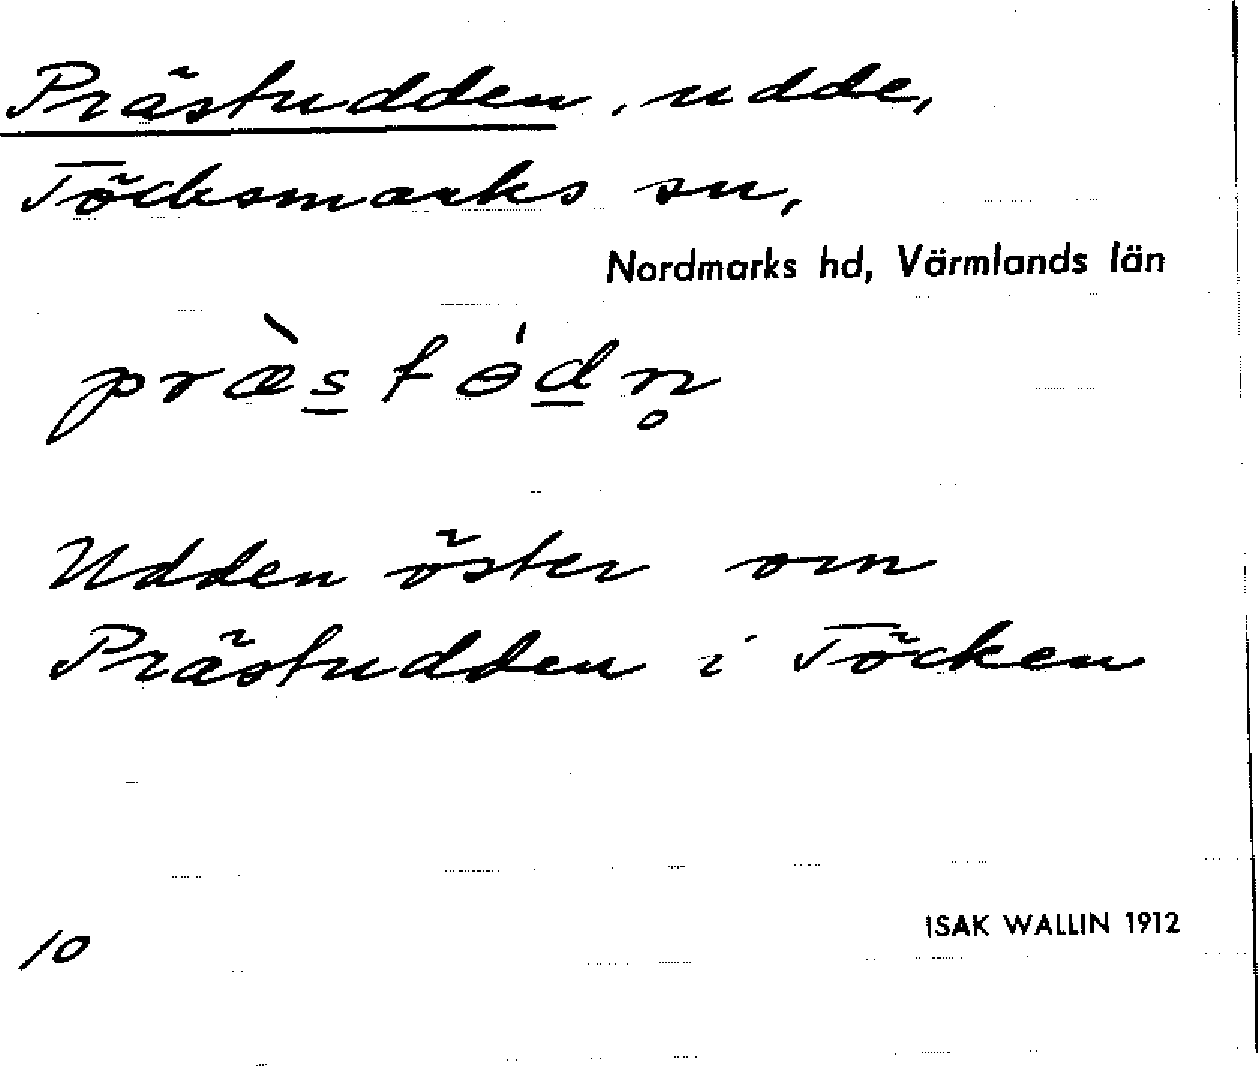 Prästudden, udde,
Töcksmarks sn,
Nordmarks hd, Värmlands län
præ̀s̲tɵ́d̲n̥
Udden öster om
Prästudden i Töcken
ISAK WALLIN 1912
10